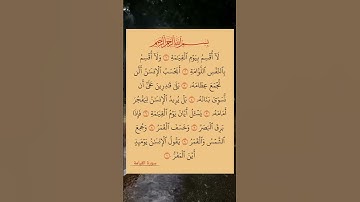 بسم الله الرحمن الرحيم
لَآ أُقْسِمُ بِيَوْمِ ٱلْقِيَٰمَةِ ۝ وَلَآ أُقْسِمُ
بِٱلنَّفْسِ ٱللَّوَّامَةِ ۝ أَيَحْسَبُ ٱلْإِنسَٰنُ أَلَّن
نَّجْمَعَ عِظَامَهُۥ ۝ بَلَىٰ قَٰدِرِينَ عَلَىٰٓ أَن
نُّسَوِّىَ بَنَانَهُۥ ۝ بَلْ يُرِيدُ ٱلْإِنسَٰنُ لِيَفْجُرَ
أَمَامَهُۥ ۝ يَسْـَٔلُ أَيَّانَ يَوْمُ ٱلْقِيَٰمَةِ ۝ فَإِذَا
بَرِقَ ٱلْبَصَرُ ۝ وَخَسَفَ ٱلْقَمَرُ ۝ وَجُمِعَ
ٱلشَّمْسُ وَٱلْقَمَرُ ۝ يَقُولُ ٱلْإِنسَٰنُ يَوْمَئِذٍ
أَيْنَ ٱلْمَفَرُّ ۝
سورة القيامة